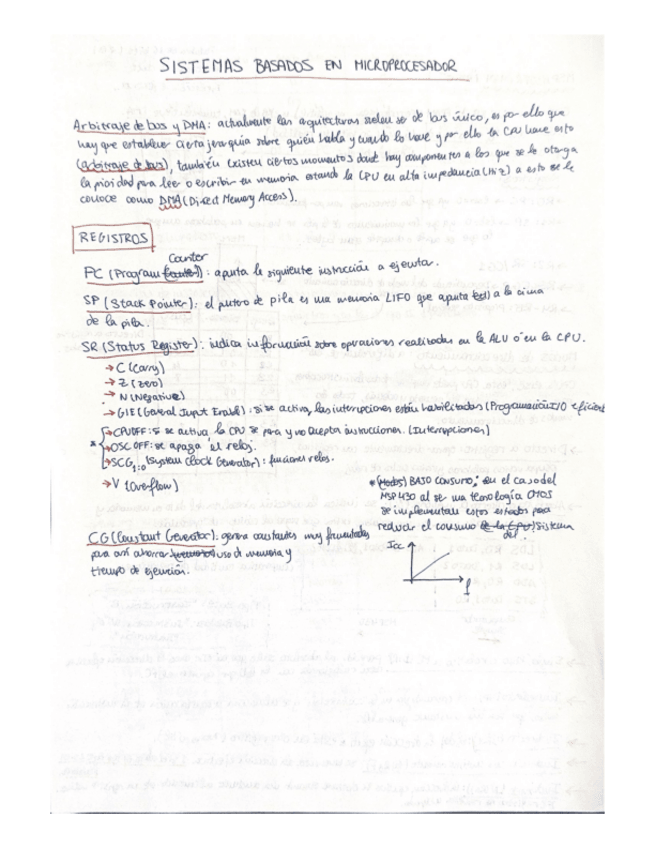 SISTEMAS BASADOS EN MICROPROCESADOR
Arbitraje de bus y DMA: actualmente las arquitecturas suelen ser de bus único, es por ello que
hay que establecer cierta jerarquía sobre quién habla y cuando lo hace y por ello la CPU hace esto
(arbitraje de bus), también existen ciertos momentos donde hay componentes a los que se le otorga
la prioridad para leer o escribir en memoria estando la CPU en alta impedancia (Hi z) a esto se le
conoce como DMA (Direct Memory Access).
REGISTROS
Counter
PC (Program): apunta la siguiente instrucción a ejecutar.
SP (Stack Pointer): el puntero de pila es una memoria LIFO que apunta a la cima
de la pila.
SR (Status Register): indica información sobre operaciones realizadas en la ALU o en la CPU.
→ C (Carry)
→ Z (zero)
→ N (Negative)
→ GIE (General Input Enable): si se activa, las interrupciones están habilitadas (Programación I/O eficient
* → CPUOFF: si se activa la CPU se para y no acepta instrucciones. (Interrupciones)
→ OSCOFF: se apaga "el reloj".
→ SCG1:0 (System Clock Generator): funciones reloj.
→ V (Overflow)
* (Modos) BAJO CONSUMO; en el caso del
MSP430 al ser una tecnología CMOS
se implementan estos estados para
reducir el consumo del sistema
CG (Constant Generator): genera constantes muy frecuentadas
para así ahorrar uso de memoria y
tiempo de ejecución.
Icc
f